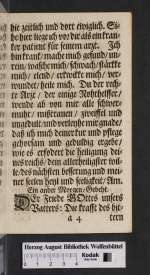 hie zeitlich und dort ewiglich. Si-
he hier liege ich vor dir als ein kran-
ker patient für seinem artzt. Ich
bin kranck/ mache mich gesund/ un-
rein/ wasche mich/ schwach/ stärcke
mich/ elend/ erqvicke mich/ ver-
wundet/ heile mich. Du der rech-
te Artzt/ der einige Nothhelffer/
wende ab von mir alle schwer-
muht/ mißtrauen/ zweiffel und
ungedult/ und verleihe mir gnade/
daß ich mich deiner kur und pflege
gehorsam und gedultig ergebe/
wie es erfodert die heiligung dei-
nes reichs/ dein allerheiligster wil-
le/ des nächsten besserung und mei-
ner seelen heyl und seeligkeit/ Am.
Ein ander Morgen-Gebeht.
DEr Friede GOttes unsers
Vatters: Die krafft des bit-
a 4 tern
Herzog August Bibliothek Wolfenbüttel